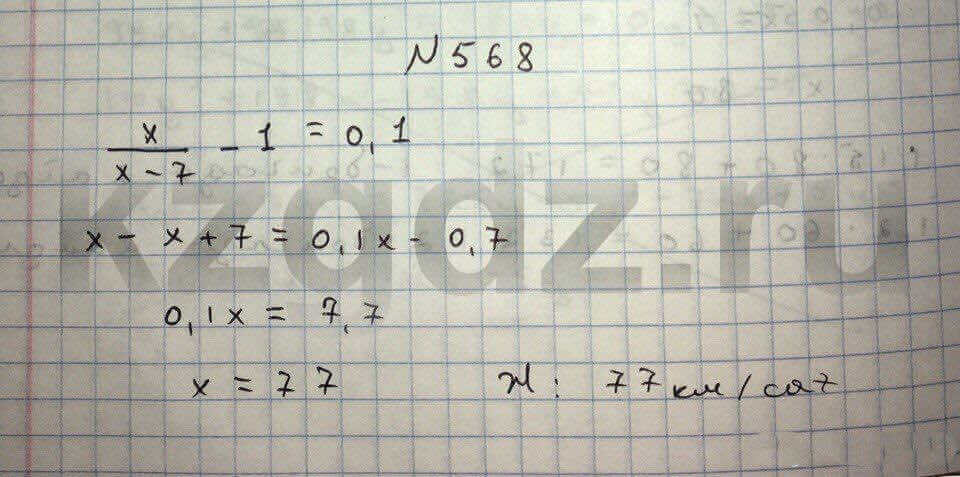 N 568
x/(x-7) - 1 = 0,1
x - x + 7 = 0,1x - 0,7
0,1x = 7,7
x = 77 Ж: 77 км/сағ
kzgdz.ru